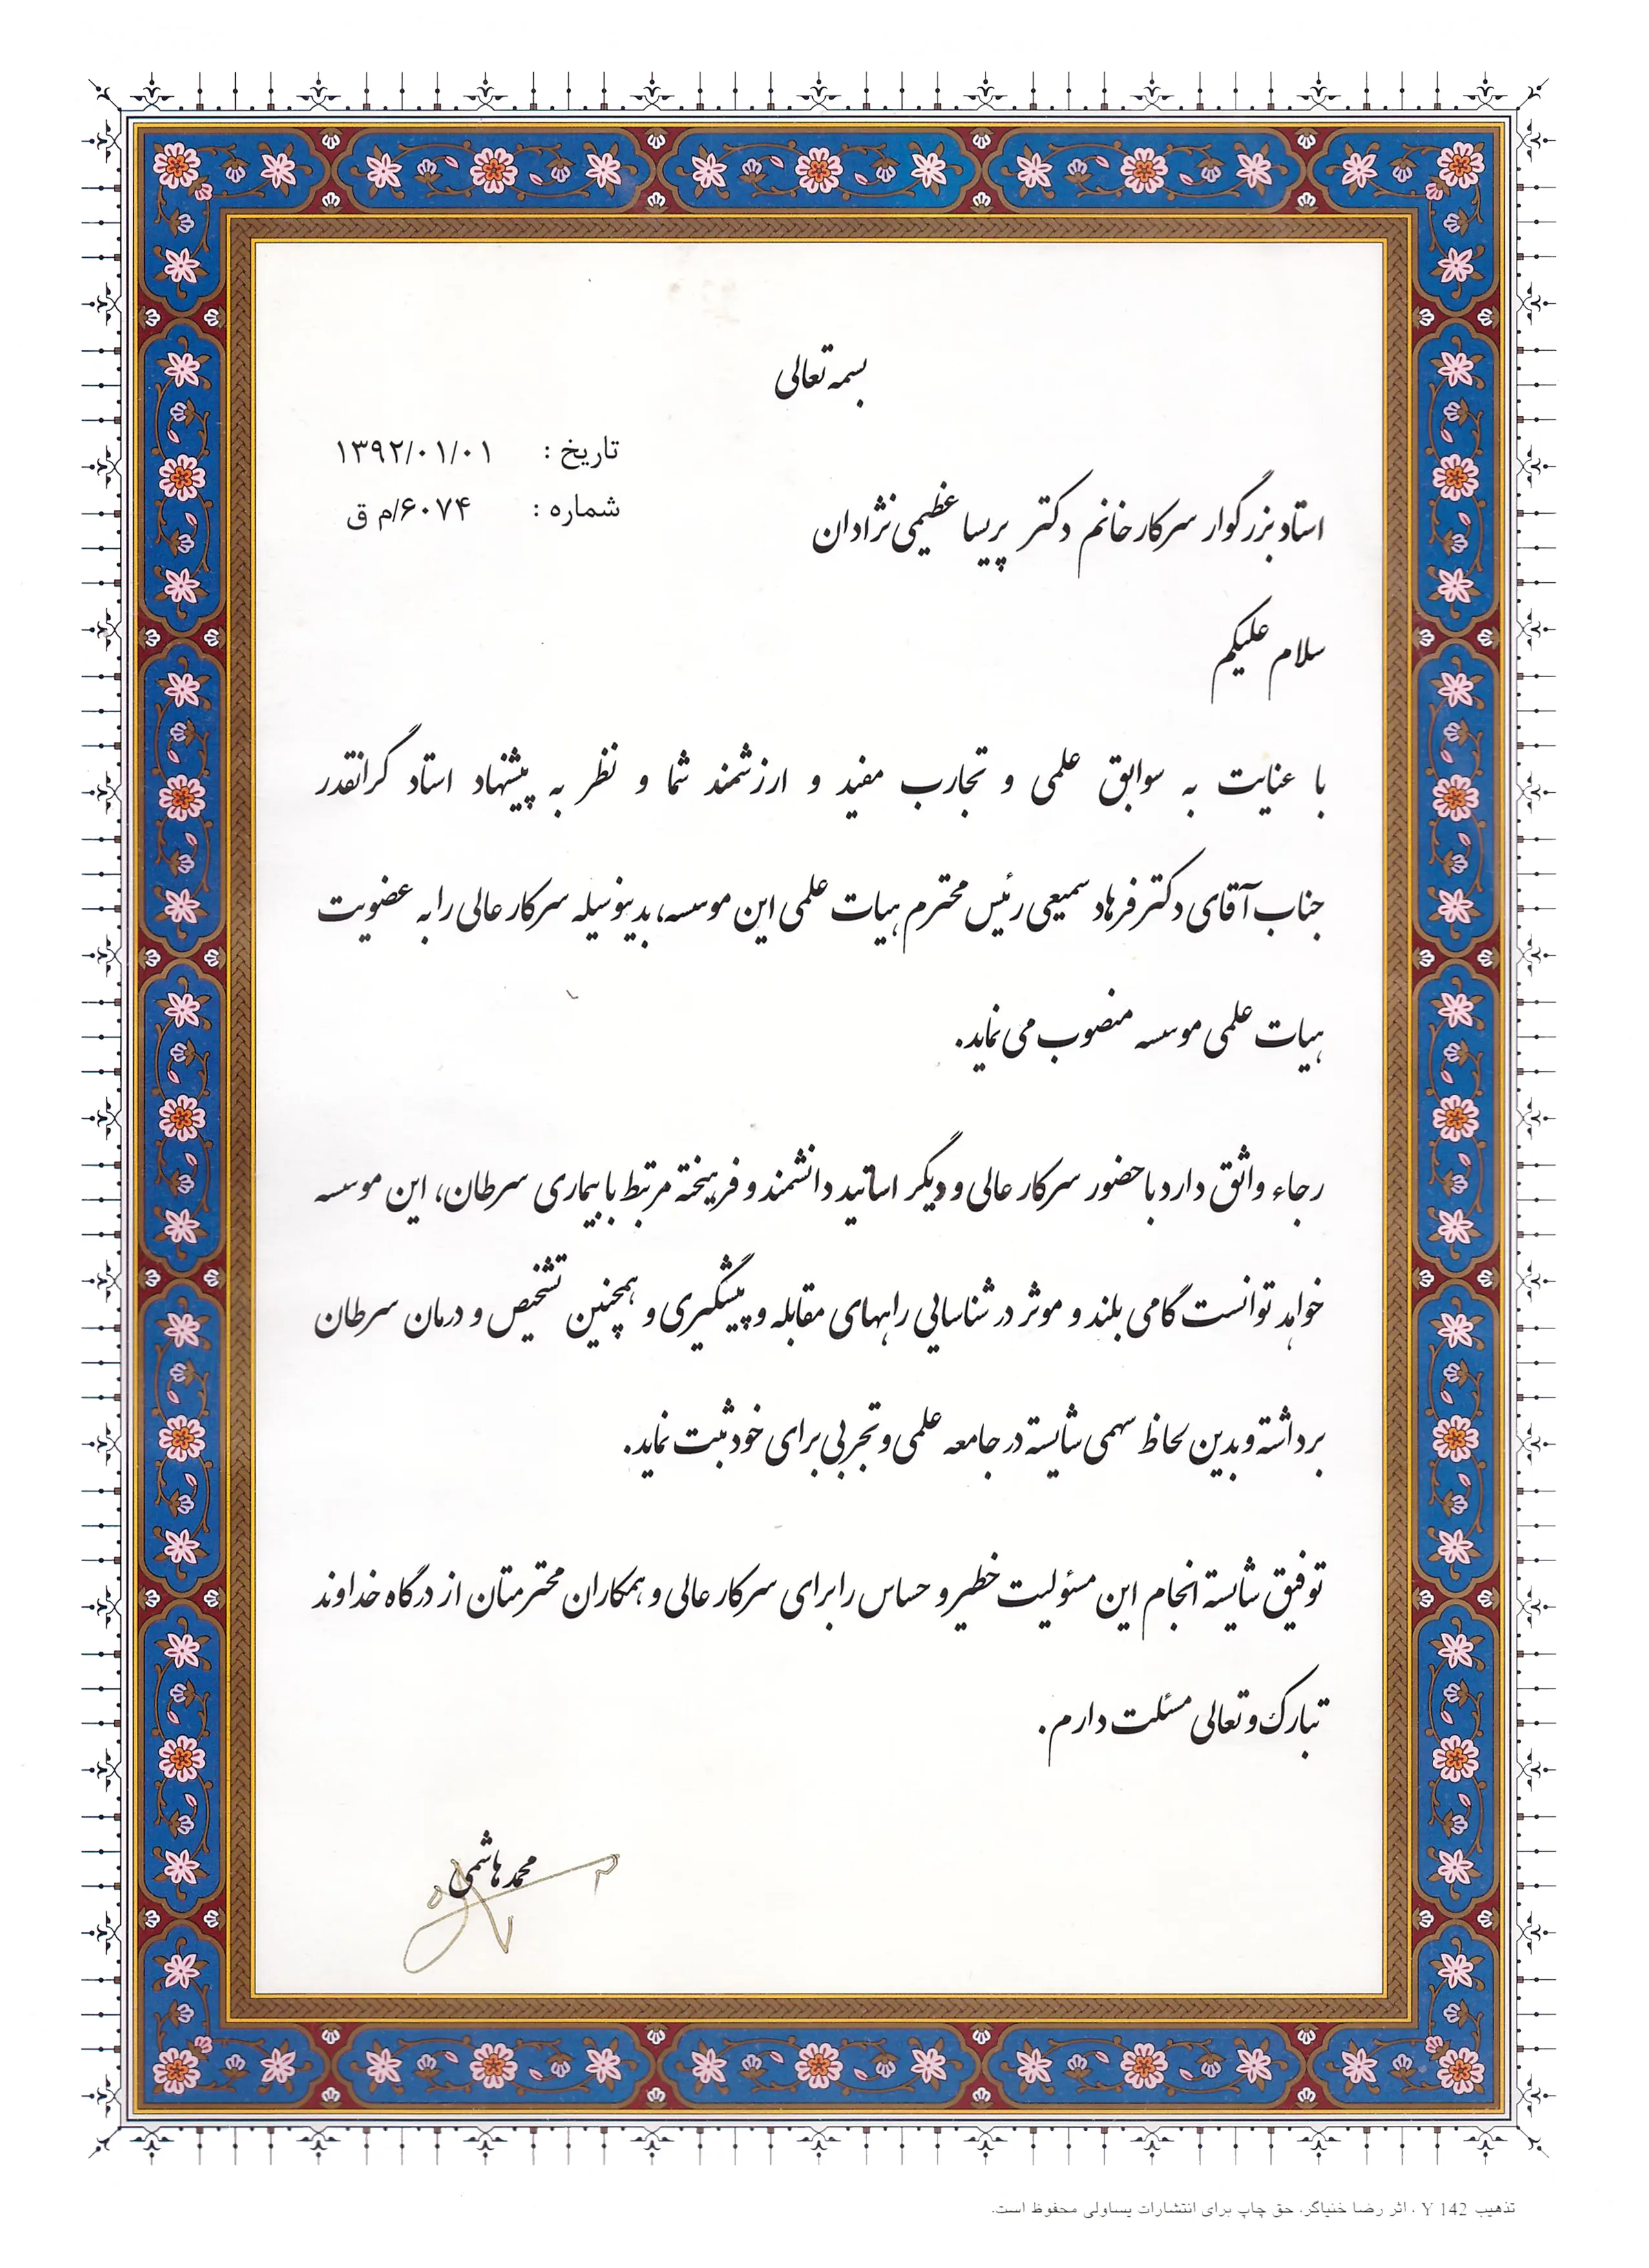 بسمه تعالی
تاریخ : ۱۳۹۲/۰۱/۰۱
شماره : ۶۰۷۴/م ق
استاد بزرگوار سرکار خانم دکتر پریسا عظیمی نژادان
سلام علیکم
با عنایت به سوابق علمی و تجارب مفید و ارزشمند شما و نظر به پیشنهاد استاد گرانقدر
جناب آقای دکتر فرهاد سمیعی رئیس محترم هیات علمی این موسسه، بدینوسیله سرکار عالی را به عضویت
هیات علمی موسسه منصوب می نماید.
رجاء واثق دارد با حضور سرکار عالی و دیگر اساتید دانشمند و فرهیخته مرتبط با بیماری سرطان، این موسسه
خواهد توانست گامی بلند و موثر در شناسایی راههای مقابله و پیشگیری و همچنین تشخیص و درمان سرطان
برداشته و بدین لحاظ سهمی شایسته در جامعه علمی و تجربی برای خود ثبت نماید.
توفیق شایسته انجام این مسئولیت خطیر و حساس را برای سرکار عالی و همکاران محترمتان از درگاه خداوند
تبارک و تعالی مسئلت دارم.
محمد هاشمی
تذهیب Y 142 ، اثر رضا خنیاگر، حق چاپ برای انتشارات یساولی محفوظ است.